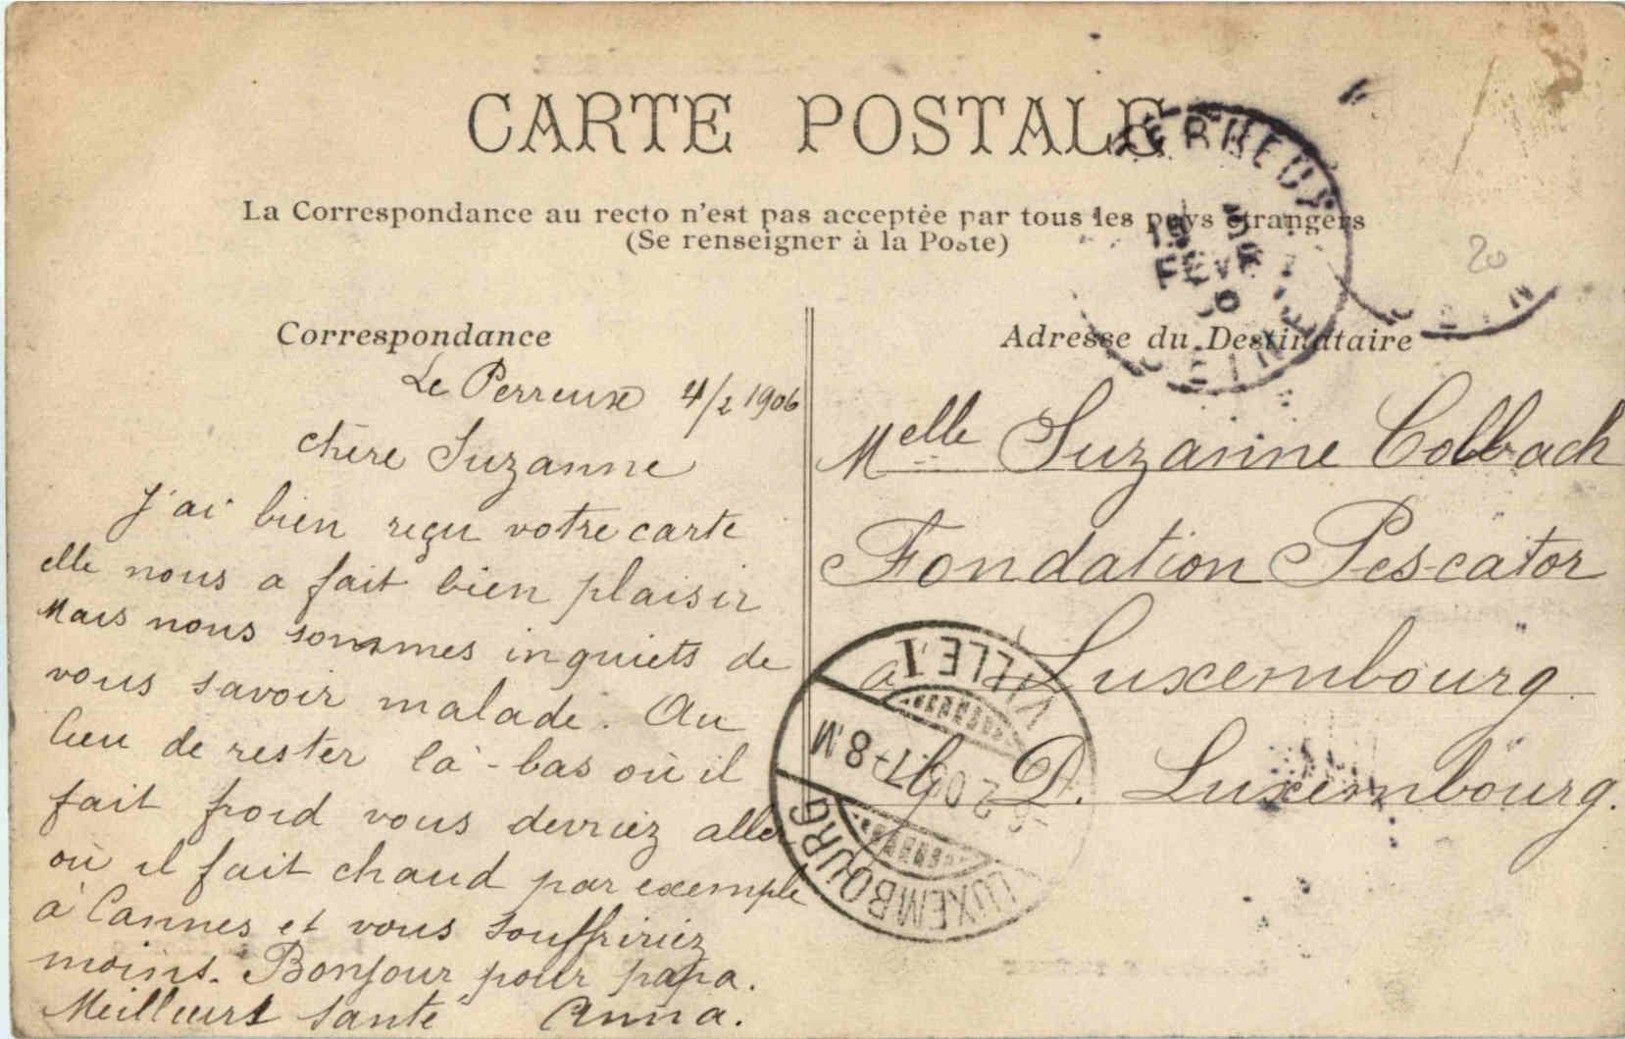 CARTE POSTALE
La Correspondance au recto n'est pas acceptée par tous les pays étrangers
(Se renseigner à la Poste)
20
Correspondance
Le Perreux 4/2 1906
chère Suzanne
J'ai bien reçu votre carte
elle nous a fait bien plaisir
Mais nous sommes inquiets de
vous savoir malade. Au
lieu de rester là-bas où il
fait froid vous devriez aller
où il fait chaud par exemple
à Cannes et vous souffririez
moins. Bonjour pour papa.
Meilleurs santé Anna.
Adresse du Destinataire
Melle Suzanne Colbach
Fondation Pescator
à Luxembourg
G. D. Luxembourg.
FEVR
LUXEMBOURG
VILLE 1
7-8.M